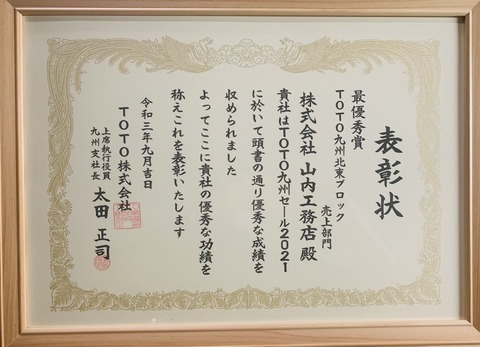 表彰状
最優秀賞
TOTO九州北東ブロック
売上部門
株式会社 山内工務店 殿
貴社はTOTO九州セール2021
に於いて頭書の通り優秀な成績を
収められました
よってここに貴社の優秀な功績を
称えこれを表彰いたします
令和三年九月吉日
TOTO株式会社
上席執行役員
九州支社長
太田 正司